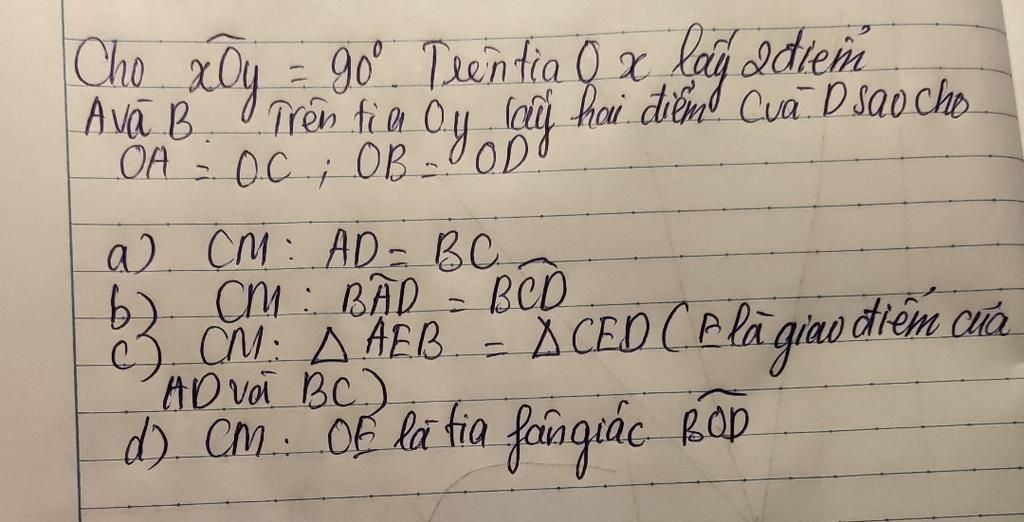 Cho xOy = 90°. Trên tia Ox lấy 2 điểm
A và B. Trên tia Oy lấy hai điểm C và D sao cho
OA = OC ; OB = OD
a) CM : AD = BC
b) CM : BAD = BCD
c) CM : △ AEB = △ CED ( E là giao điểm của
AD với BC)
d) CM : OE là tia fân giác BOD